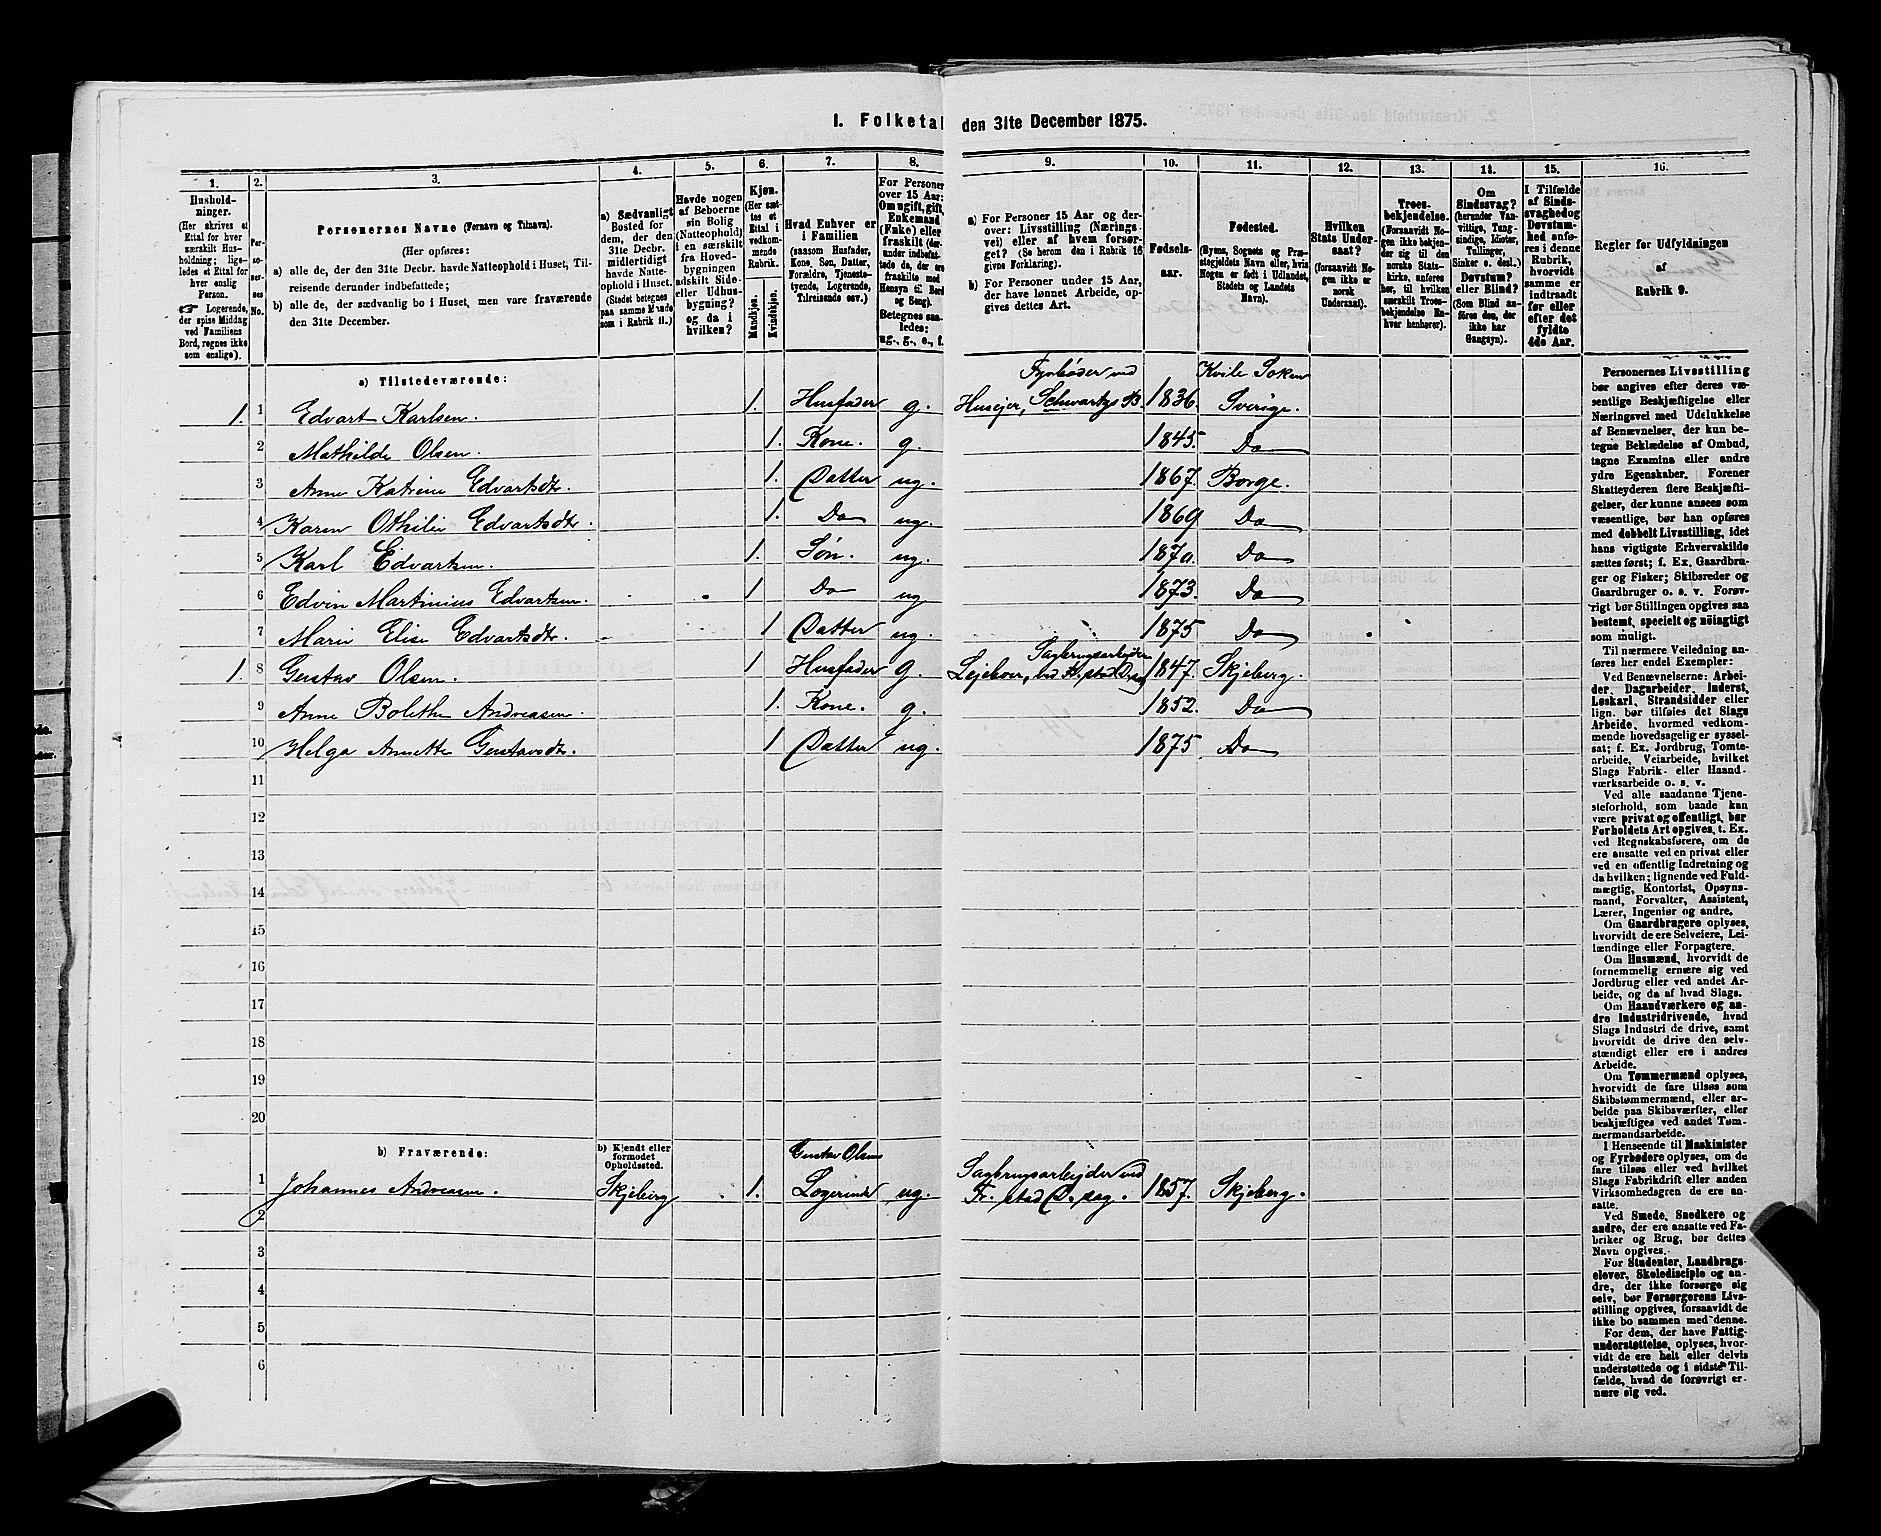 1. Folketal den 31te December 1875.
1.
Husholdninger.
(Her skrives et
Ettal for hver
særskilt Husholdning;
ligeledes et Ettal for
hver enslig
Person.
☛ Logerende,
der spise Middag
ved Familiens
Bord, regnes ikke
som enslige).
2.
Personernes No.
3.
Personernes Navne (Fornavn og Tilnavn).
(Her opføres:
a) alle de, der den 31te Decbr. havde Natteophold i Huset, Tilreisende derunder indbefattede;
b) alle de, der sædvanlig bo i Huset, men vare fraværende
den 31te December.
4.
a) Sædvanligt
Bosted for
dem, der den
31te Decbr.
midlertidigt
havde Natteophold i Huset.
(Stedet betegnes
paa samme Maade
som i Rubrik 11.)
5.
Havde nogen
af Beboerne
sin Bolig
(Natteophold)
i en særskilt
fra Hovedbygningen
adskilt Side-
eller Udhusbygning?
og da i
hvilken?
6.
Kjøn.
(Her sættes et
Ettal i
vedkommende
Rubrik.
Mandkjøn.
Kvindekjøn.
7.
Hvad Enhver er
i Familien
(saasom Husfader,
Kone, Søn, Datter,
Forældre, Tjenestetyende, Logerende,
Tilreisende osv.)
8.
For Personer
over 15 Aar:
Om ugift, gift,
Enkemand
(Enke) eller
fraskilt (derunder indbefattede de, der ere
fraskilte med
Hensyn til Bord
og Seng).
Betegnes saaledes:
ug., g., e., f.
9.
a) For Personer 15 Aar og derover: Livsstilling (Næringsvei) eller af hvem forsørget? (Se herom den i Rubrik 16
givne Forklaring).
b) For Personer under 15 Aar,
der have lønnet Arbeide, opgives dettes Art.
10.
Fødselsaar.
11.
Fødested.
(Byens, Sognets og Præstegjeldets Navn eller, hvis
Nogen er født i Udlandet,
Stedets og Landets
Navn).
12.
Hvilken
Stats Undersaat?
(forsaavidt Nogen ikke er
norsk
Undersaat).
13.
Troesbekjendelse.
(Forsaavidt Nogen ikke bekjender sig til den
norske Statskirke, anføres
her, til hvilken
særskilt Troesbekjendelse Enhver henhører).
14.
Om
Sindssvag?
(herunder Vanvittige, Tungsindige, Idioter,
Tullinger,
Sinker o. desl.)
Døvstum?
eller Blind?
(Som Blind anføres den, der
ikke har
Gangsyn).
15.
I Tilfælde
af Sindssvaghed og
Døvstumhed anføres i denne
Rubrik,
hvorvidt
samme er
indtraadt
før eller
efter det
fyldte
4de Aar.
16.
Regler for Udfyldningen
af
Rubrik 9.
a) Tilstedeværende:
Fyrbøder ved Kvile Soken
1. 1 Edvart Karlsen. 1. Husfader g. Huseier, Schwartz B. 1836. Sverige.
2 Mathilde Olsen. 1. Kone. g. 1845. Do
3 Anne Katrine Edvartsdtr. 1. Datter ug. 1867. Borge.
4 Karen Othilie Edvartsdtr. 1. Do ug. 1869 Do
5 Karl Edvartsen. 1. Søn. ug. 1870. Do
6 Edvin Martinius Edvartsen. 1 Do ug 1873. Do
7 Marie Elise Edvartsdtr. 1 Datter ug. 1875 Do
Sagbrugsarbejder
1. 8 Gustav Olsen. 1 Husfader g. Lejeboer, ved Fr.stad D.sag 1847. Skjeberg.
9 Anne Bolethe Andreasen. 1. Kone. g. 1852. Do
10 Helga Annette Gustavsdtr. 1 Datter ug. 1875 Do
11
12
13
14
15
16
17
18
19
20
b) Fraværende:
b) Kjendt eller
formodet
Opholdssted.
Gustav Olsens Sagbrugsarbejder ved
1 Johannes Andreasen. Skjeberg 1. Logerende ug. Fr.stad D.sag. 1857. Skjeberg.
2
3
4
5
6
Personernes Livsstilling
bør angives efter deres væsentlige Beskjæftigelse eller
Næringsvei med Udelukkelse
af Benævnelser, der kun betegne Beklædelse af Ombud,
tagne Examina eller andre
ydre Egenskaber. Forener
Skatteyderen flere Beskjæftigelser, der kunne ansees som
væsentlige, bør han opføres
med dobbelt Livsstilling, idet
hans vigtigste Erhvervskilde
sættes først; f. Ex. Gaardbruger og Fisker; Skibsreder og
Gaardbruger o. s. v. Forøvrigt bør Stillingen opgives saa
bestemt, specielt og nøiagtigt
som muligt.
Til nærmere Veiledning anføres her endel Exempler:
Ved Benævnelserne: Arbeider, Dagarbeider, Inderst,
Løskarl, Strandsidder eller
lign. bør tilføies det Slags
Arbeide, hvormed vedkommende hovedsagelig er sysselsat; f. Ex. Jordbrug, Tomtearbeide, Veiarbeide, hvilket
Slags Fabrik- eller Haandværksarbeide o. s. v.
Ved alle saadanne Tjenesteforhold, som baade kan
være privat og offentligt, bør
Forholdets Art opgives, t. Ex.
ved Regnskabsførere, om de
ere ansatte ved en privat eller
ved en offentlig Indretning og
da hvilken; lignende ved Fuldmægtig, Kontorist, Opsynsmand, Forvalter, Assistent,
Lærer, Ingeniør og andre.
Om Gaardbrugere oplyses,
hvorvidt de ere Selveiere, Leilændinge eller Forpagtere.
Om Husmænd, hvorvidt de
fornemmelig ernære sig ved
Jordbrug eller ved andet Arbeide, og da af hvad Slags.
Om Haandværkere og andre Industridrivende, hvad
Slags Industri de drive, samt
hvorvidt de drive den selvstændigt eller ere i andres
Arbeide.
Om Tømmermænd oplyses,
hvorvidt de fare tilsøs som
Skibstømmermænd, eller arbeide paa Skibsværfter, eller
beskjæftiges ved andet Tømmermandsarbeide.
I Henseende til Maskinister
og Fyrbødere oplyses, om de
fare tilsøs eller ved hvilket
Slags Fabrikdrift eller anden
Virksomhedsgren de ere ansatte.
Ved Smede, Snedkere og
andre, der ere ansatte ved Fabriker og Brug, bør dettes
Navn opgives.
For Studenter, Landbrugselever, Skoledisciple og andre, der ikke forsørge sig
selv, bør Forsørgerens Livsstilling opgives, forsaavidt de
ikke bo sammen med denne.
For dem, der have Fattigunderstøttelse, oplyses, hvorvidt de ere helt eller delvis
understøttede og i sidste Tilfælde, hvad de forøvrigt ernære sig ved.